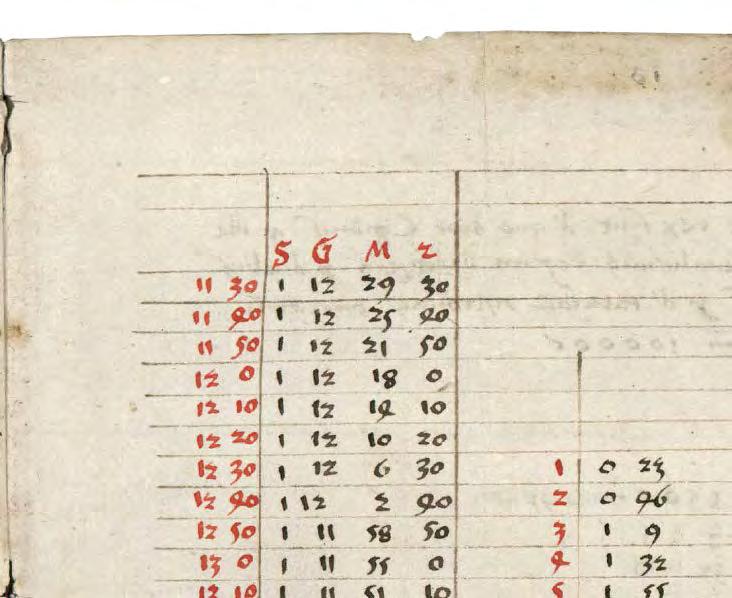 S G M 2
11 30 1 12 29 30
11 40 1 12 25 40
11 50 1 12 21 50
12 0 1 12 18 0
12 10 1 12 14 10
12 20 1 12 10 20
12 30 1 12 6 30 1 0 23
12 40 1 12 2 40 2 0 46
12 50 1 11 58 50 3 1 9
13 0 1 11 55 0 4 1 32
13 10 1 11 51 10 5 1 55